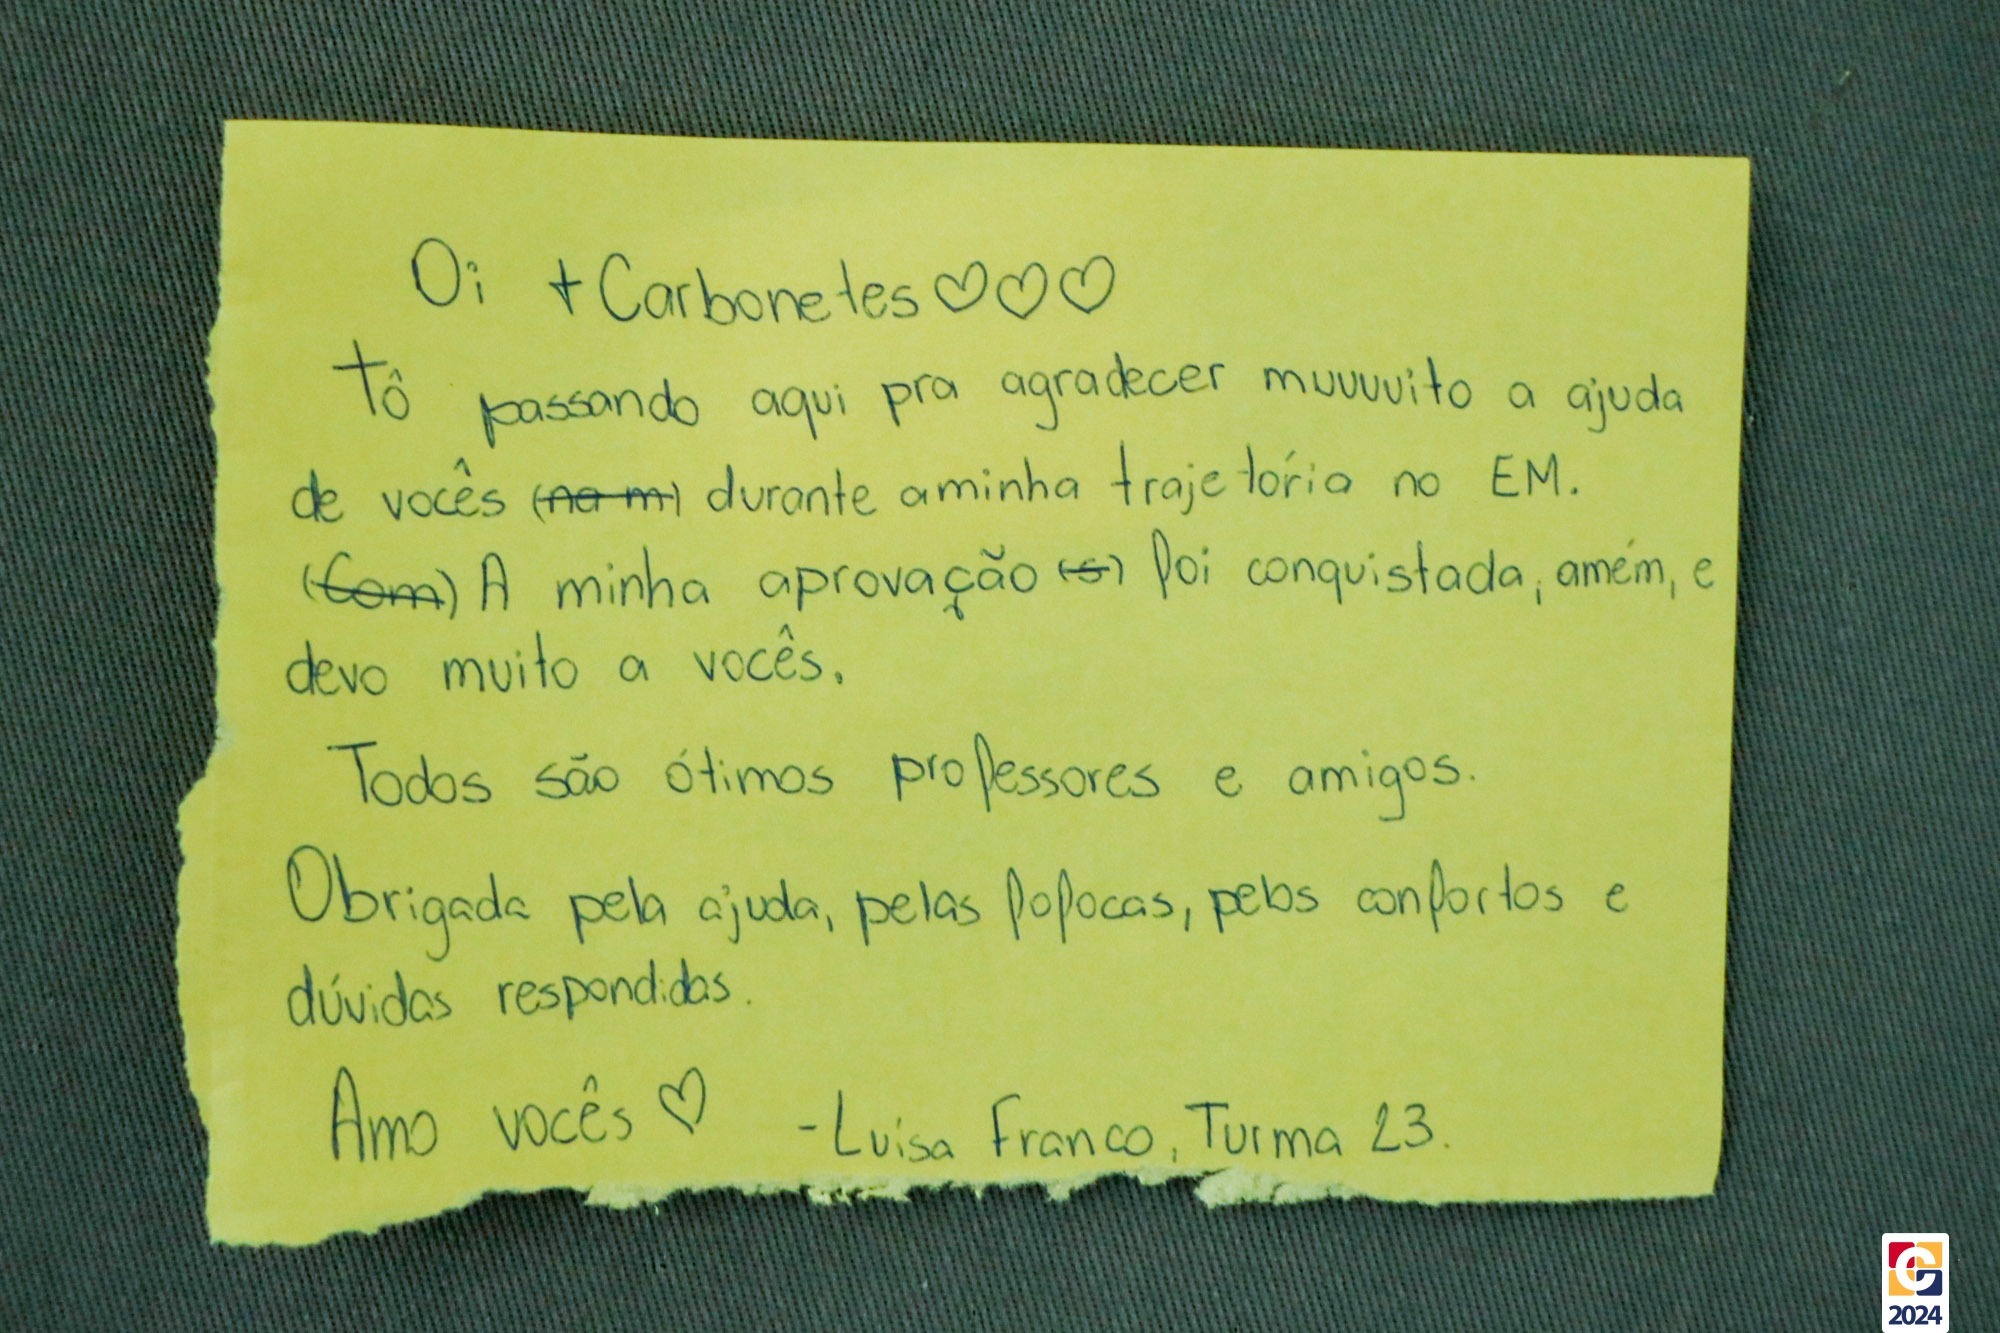 Oi +Carbonetes♡♡♡
Tô passando aqui pra agradecer muuuuito a ajuda
de vocês (na m) durante a minha trajetória no EM.
(Com) A minha aprovação (s) foi conquistada, amém, e
devo muito a vocês.
Todos são ótimos professores e amigos.
Obrigada pela ajuda, pelas fofocas, pelos confortos e
dúvidas respondidas.
Amo vocês ♡ -Luísa Franco, Turma 23.
G
2024